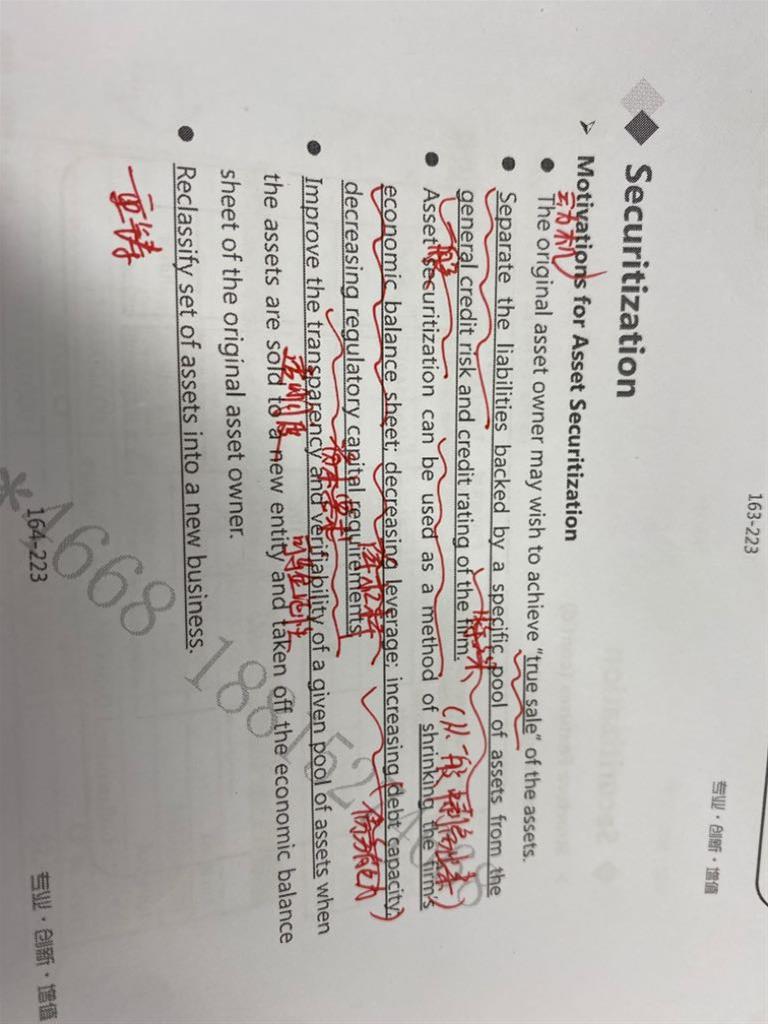 163-223
专业·创新·增值
Securitization
Motivations for Asset Securitization
动机
The original asset owner may wish to achieve "true sale" of the assets.
Separate the liabilities backed by a specific pool of assets from the
general credit risk and credit rating of the firm.
Asset securitization can be used as a method of shrinking the firm's
economic balance sheet; decreasing leverage; increasing debt capacity;
decreasing regulatory capital requirements
降杠杆
资本要求
Improve the transparency and verifiability of a given pool of assets when
透明度
the assets are sold to a new entity and taken off the economic balance
sheet of the original asset owner.
Reclassify set of assets into a new business.
164-223
专业·创新·增值